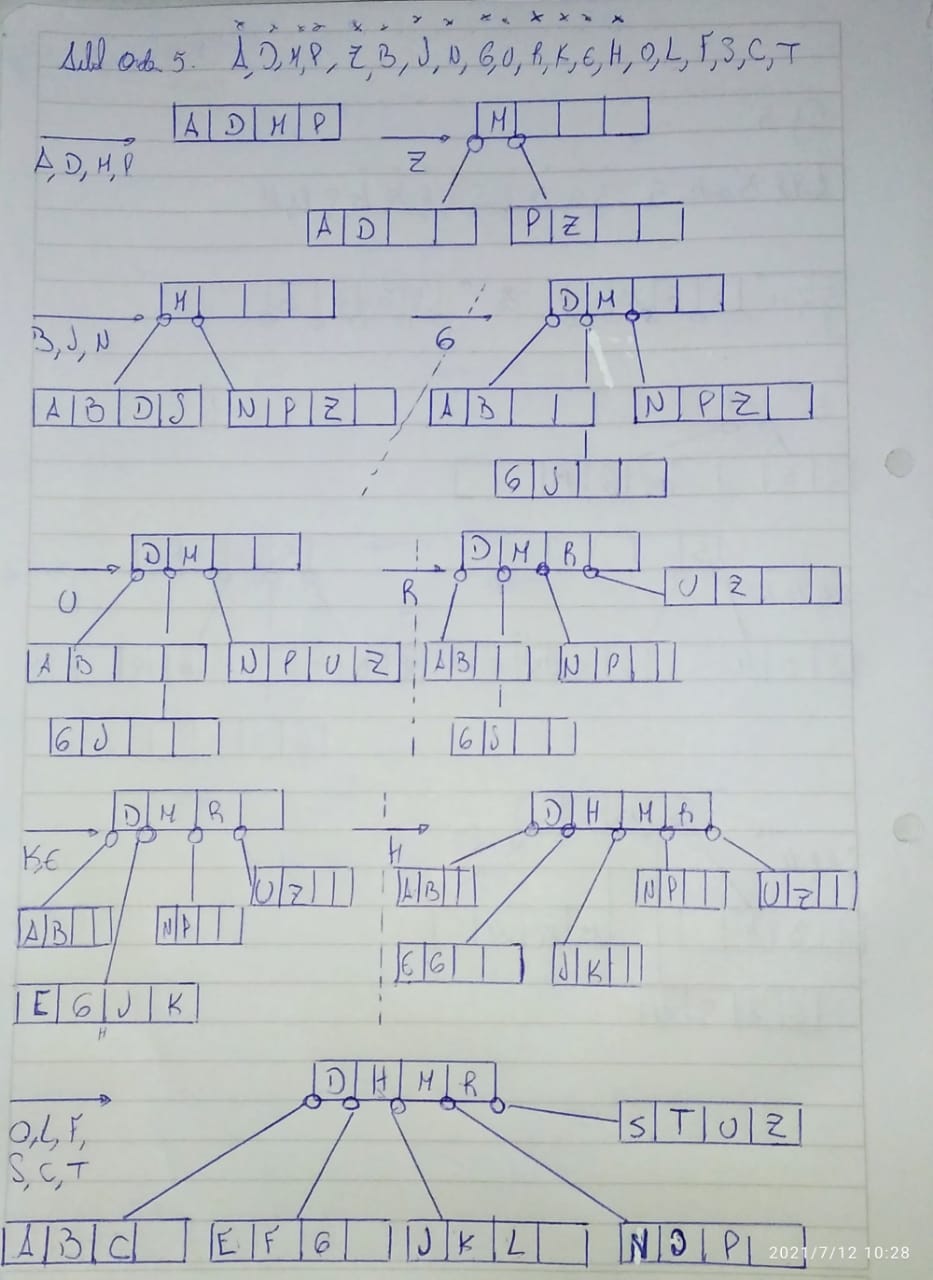 Add Ord. 5. A, D, M, P, Z, B, J, N, G, U, R, K, E, H, O, L, F, S, C, T
A, D, M, P
A D M P
Z
M
A D
P Z
B, J, N
M
A B D J
N P Z
G
D M
A B
N P Z
G J
U
D M
A B
N P U Z
G J
R
D M R
U Z
A B
N P
G J
K, E
D M R
U Z
A B
N P
E G J K
H
H
D H M R
A B
N P
U Z
E G
J K
O, L, F,
S, C, T
D H M R
S T U Z
A B C
E F G
J K L
N O P
2021/7/12 10:28